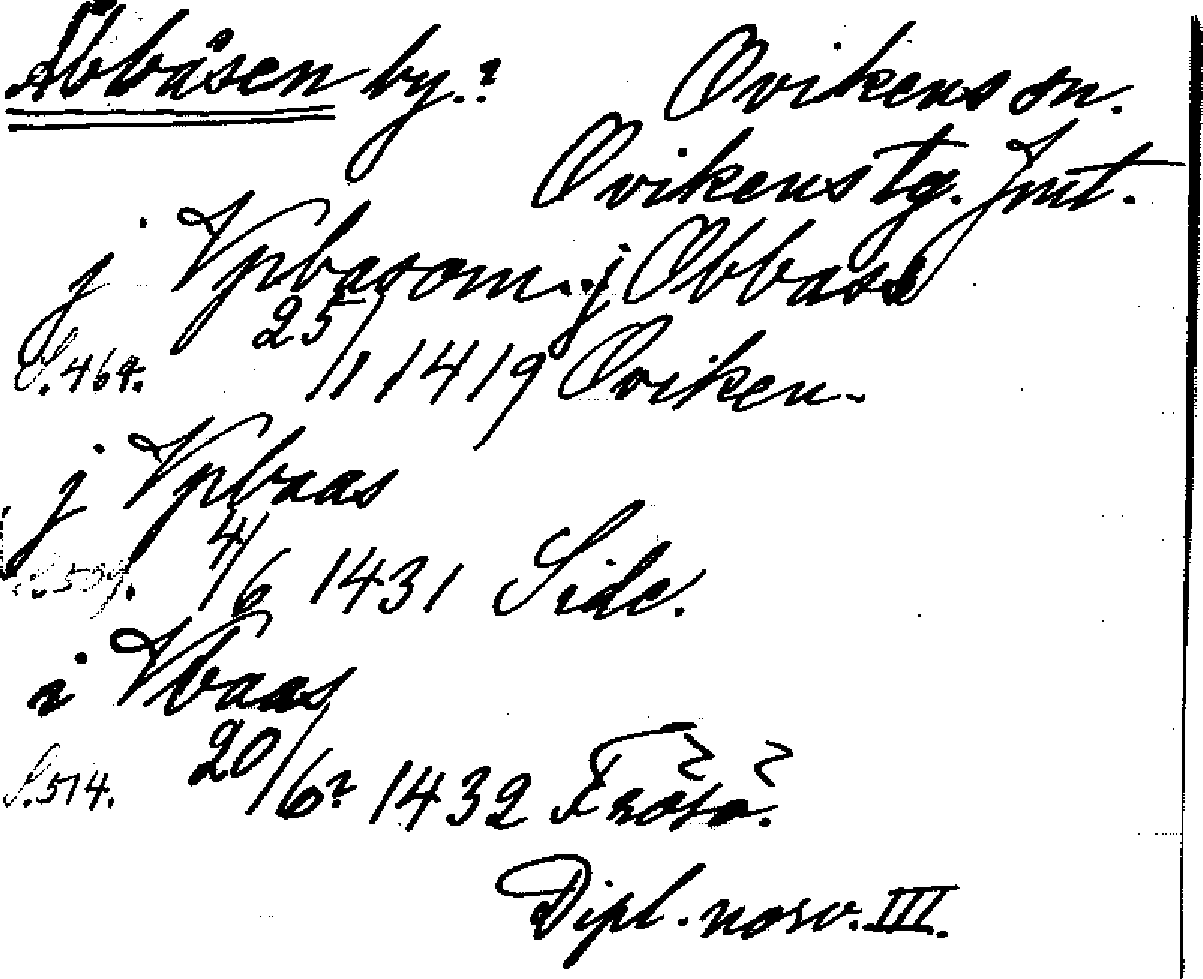 Åbbåsen by.? Ovikens sn.
Ovikens tg. Jmt.
j Vpbasom. j Obbase
S. 464. 25/11 1419 Oviken.
j Vpbaas
S. 509. 4/6 1431 Side.
i Vbaas
S. 514. 20/6? 1432 Frösö.
Dipl. norv. III.